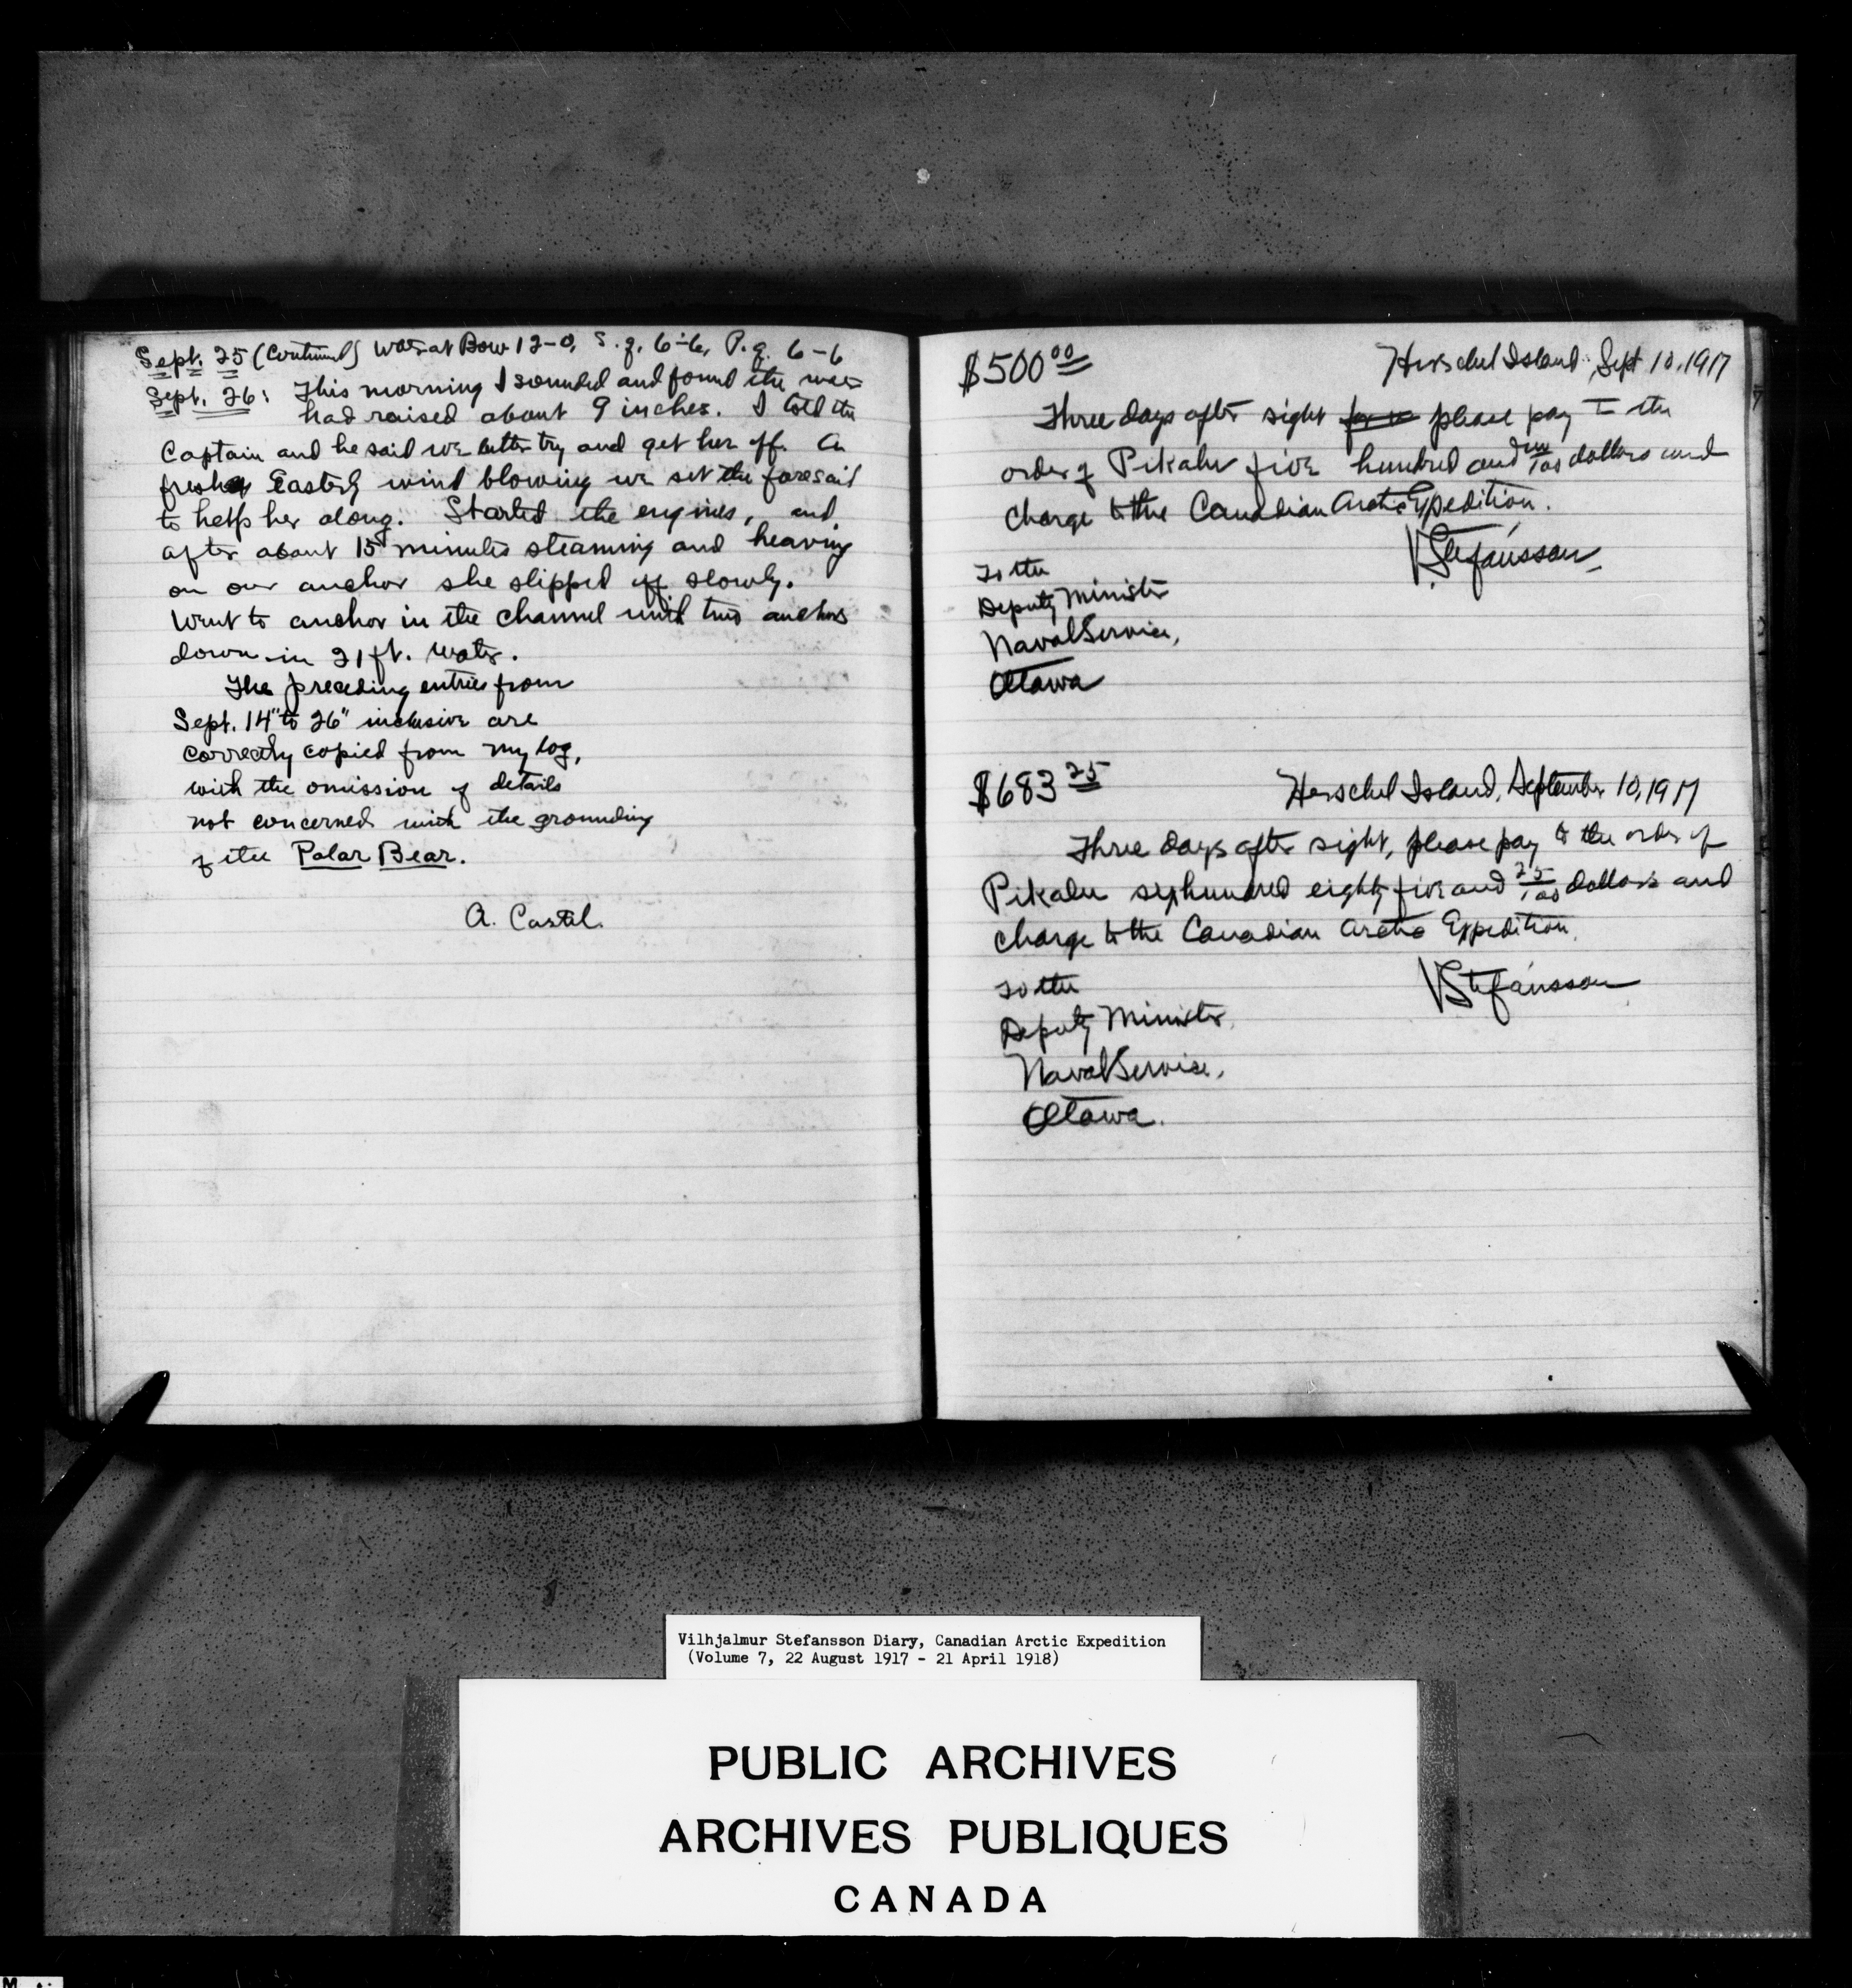 Sept. 25 (Continued) Water at Bow 12-0, S. q. 6-6, P. q. 6-6
Sept. 26: This morning I sounded and found the water
had raised about 9 inches. I told the
Captain and he said we better try and get her off. A
fresh Easterly wind blowing we set the foresail
to help her along. Started the engines, and
after about 15 minutes steaming and heaving
on our anchor she slipped off slowly.
Went to anchor in the channel with two anchors
down in 21 ft. water.
The preceding entries from
Sept. 14" to 26" inclusive are
correctly copied from my log,
with the omission of details
not concerned with the grounding
of the Polar Bear.
A. Castel.
$500 00
Herschel Island, Sept 10, 1917
Three days after sight please pay to the
order of Pikalu five hundred and no/100 dollars and
charge to the Canadian Arctic Expedition.
V Stefánsson
To the
Deputy Minister
Naval Service,
Ottawa
$683 25
Herschel Island, September 10, 1917
Three days after sight, please pay to the order of
Pikalu six hundred eighty five and 25/100 dollars and
charge to the Canadian Arctic Expedition.
V Stefánsson
To the
Deputy Minister,
Naval Service,
Ottawa.
Vilhjalmur Stefansson Diary, Canadian Arctic Expedition
(Volume 7, 22 August 1917 - 21 April 1918)
PUBLIC ARCHIVES
ARCHIVES PUBLIQUES
CANADA